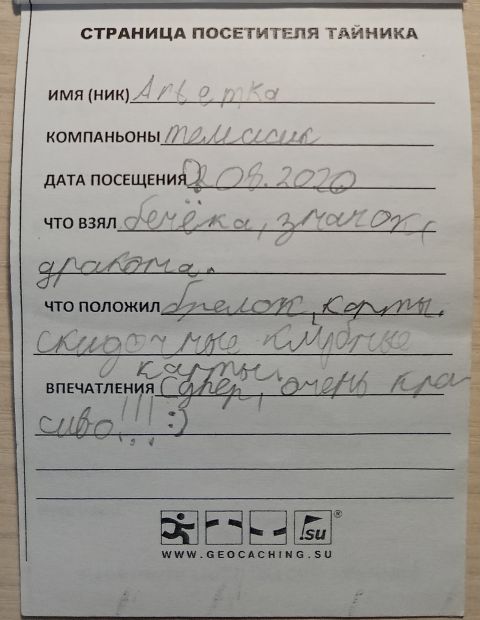 СТРАНИЦА ПОСЕТИТЕЛЯ ТАЙНИКА
ИМЯ (НИК)
КОМПАНЬОНЫ
ДАТА ПОСЕЩЕНИЯ 08.2020
ЧТО ВЗЯЛ бечёвка, значок
дракона.
ЧТО ПОЛОЖИЛ брелок, карты.
скидочные клубные
карты.
ВПЕЧАТЛЕНИЯ Супер, очень кра
сиво!!! :)
.su ®
WWW.GEOCACHING.SU